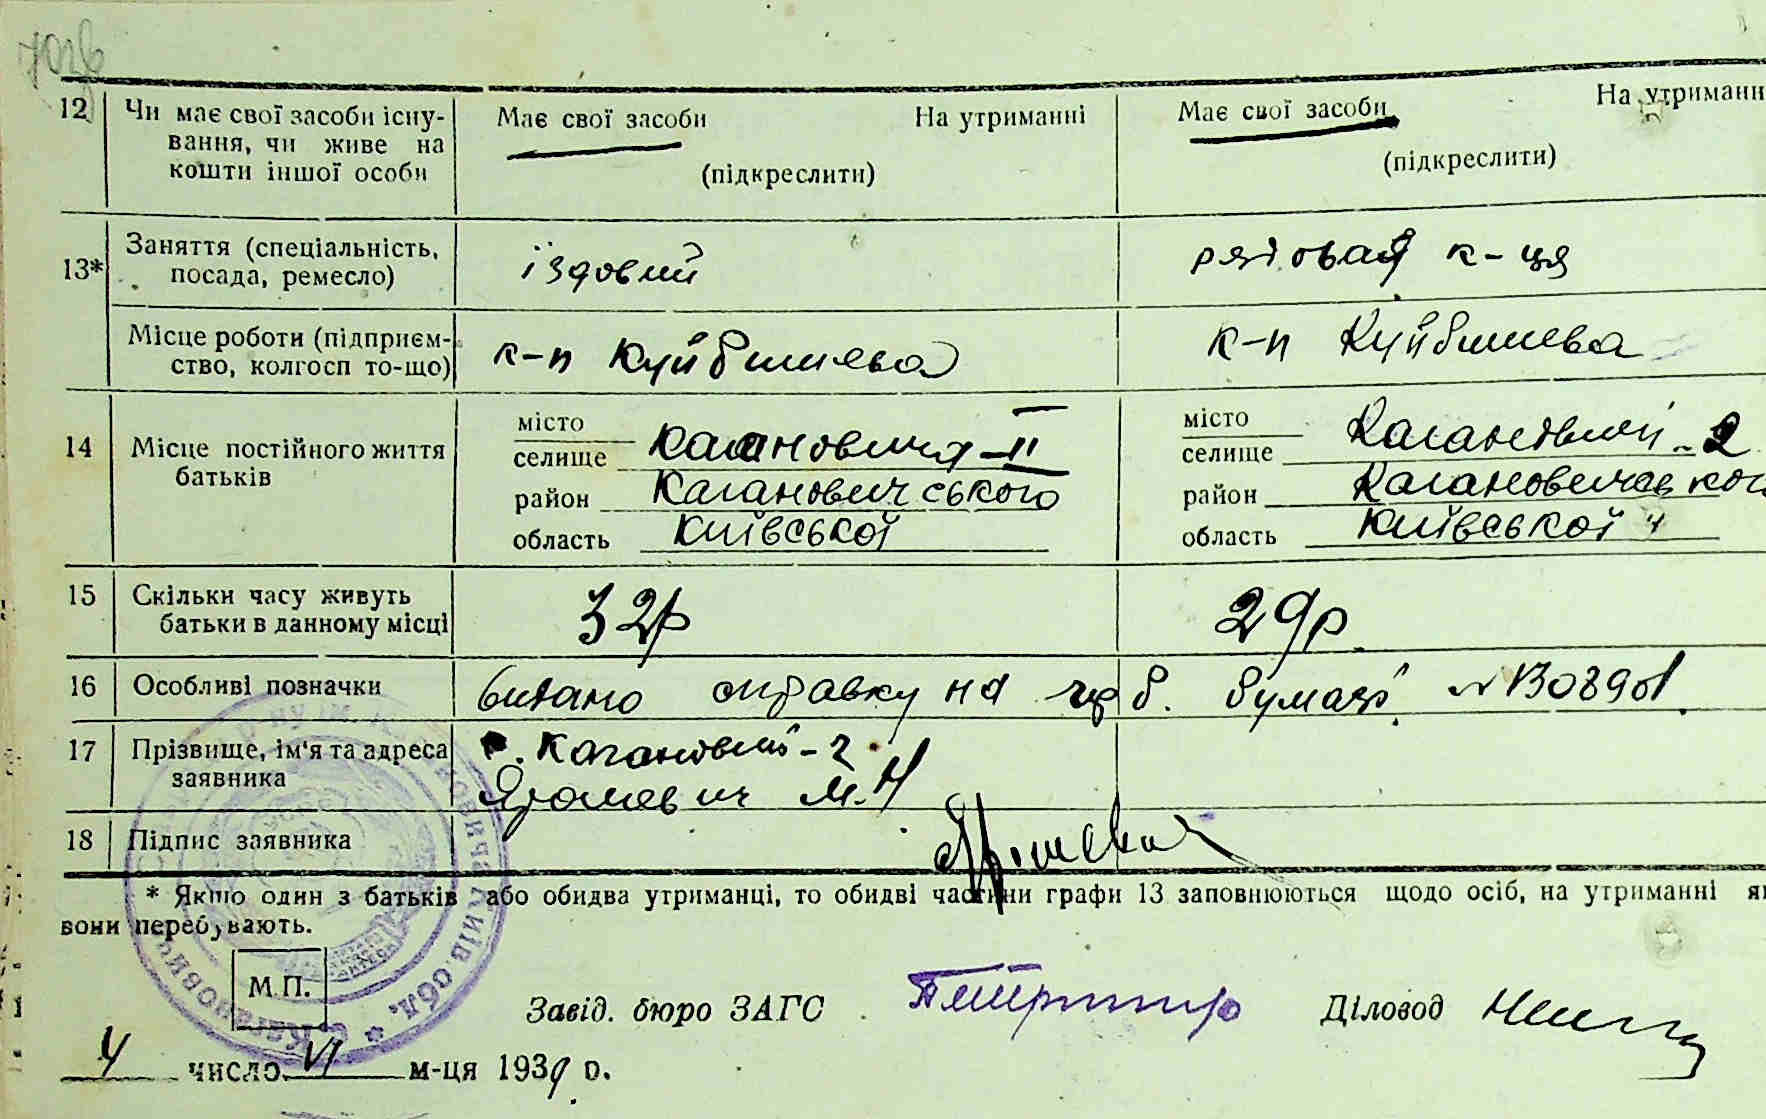 12 Чи має свої засоби існу- Має свої засоби На утриманні Має свої засоби На утриманн
вання, чи живе на
кошти іншої особи (підкреслити) (підкреслити)
13* Заняття (спеціальність, посада, ремесло) їздовий рядовая к-ця
Місце роботи (підприєм-
ство, колгосп то-що) к-п Куйбишева к-п Куйбишева
14 Місце постійного життя
батьків
місто
селище Кагановичя-II
район Кагановичського
область Київської
місто
селище Кагановичи-2
район
область Київської
15 Скільки часу живуть
батьки в данному місці 32р 29р
16 Особливі позначки видано справку на б. бумазі
17 Прізвище, ім'я та адреса
заявника
с. Кагановичі-2
Ярошевич М.Н
18 Підпис заявника
* Якщо один з батьків або обидва утриманці, то обидві частини графи 13 заповнюються щодо осіб, на утриманні як
вони перебувають.
М.П.
Завід. бюро ЗАГС Діловод
4 число VI м-ця 1939 р.